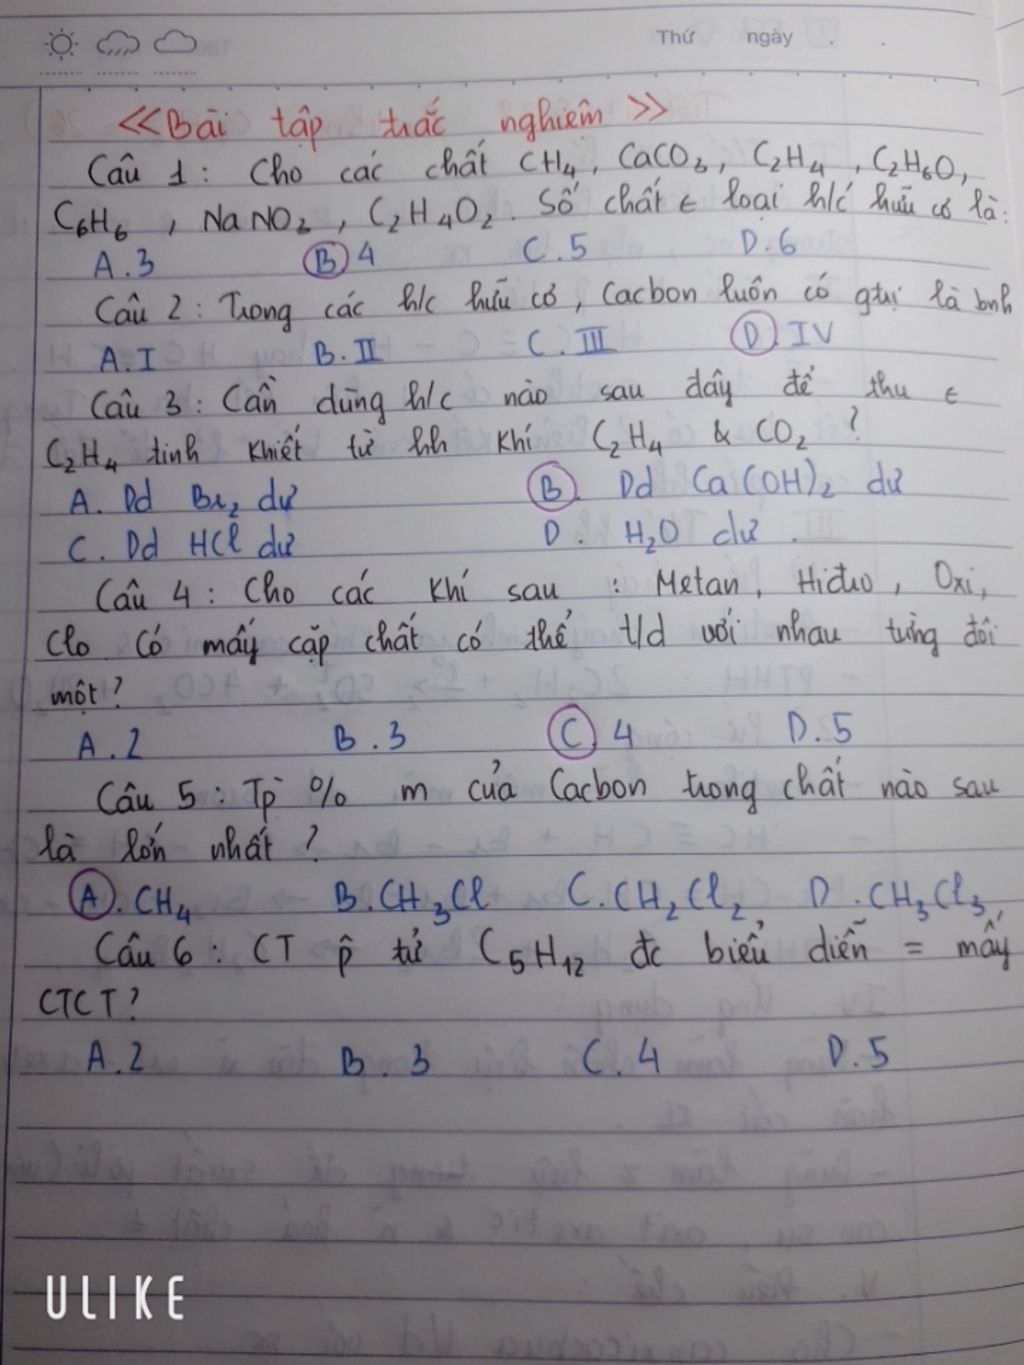 Thứ ngày
<<Bài tập trắc nghiêm>>
Câu 1: Cho các chất CH4, CaCO3, C2H4, C2H6O,
C6H6, NaNO2, C2H4O2. Số chất ∈ loại h/c hữu cơ là:
A.3 B 4 C.5 D.6
Câu 2: Trong các h/c hữu cơ, Cacbon luôn có gtrị là bnh
A.I B.II C.III D IV
Câu 3: Cần dùng h/c nào sau đây để thu ∈
C2H4 tinh khiết từ hh khí C2H4 & CO2 ?
A. Dd Br2 dư B. Dd Ca(OH)2 dư
C. Dd HCl dư D. H2O dư.
Câu 4: Cho các khí sau : Metan, Hiđro, Oxi,
Clo Có mấy cặp chất có thể t/d với nhau từng đôi
một?
A.2 B.3 C 4 D.5
Câu 5: Tp % m của Cacbon trong chất nào sau
là lớn nhất?
A. CH4 B.CH3Cl C.CH2Cl2 D.CH3Cl3
Câu 6: CT p̂ tử C5H12 đc biểu diễn = mấy
CTCT?
A.2 B.3 C.4 D.5
ULIKE